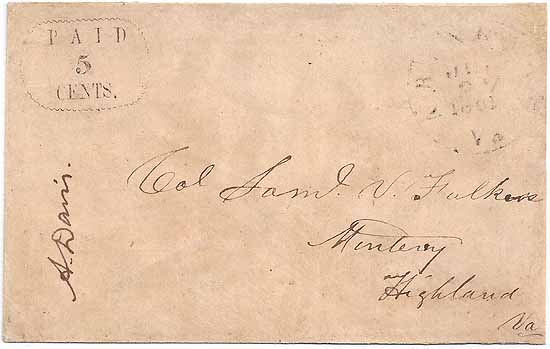 PAID
5
CENTS.
1861
Va
A. Davis.
Col Saml. V. Fulkers
Monterey
Highland
Va